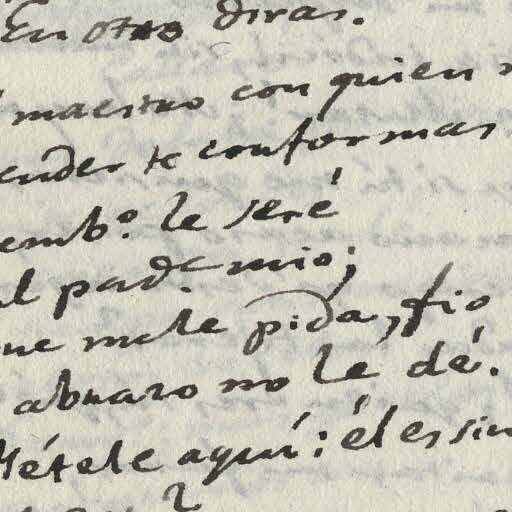 En otro diras.
maestro con quien
ender te conformas
emb.º le seré
al pad.e mio;
ue me le pida, fio
abrazo no le dé.
Métele aquí: él es sin